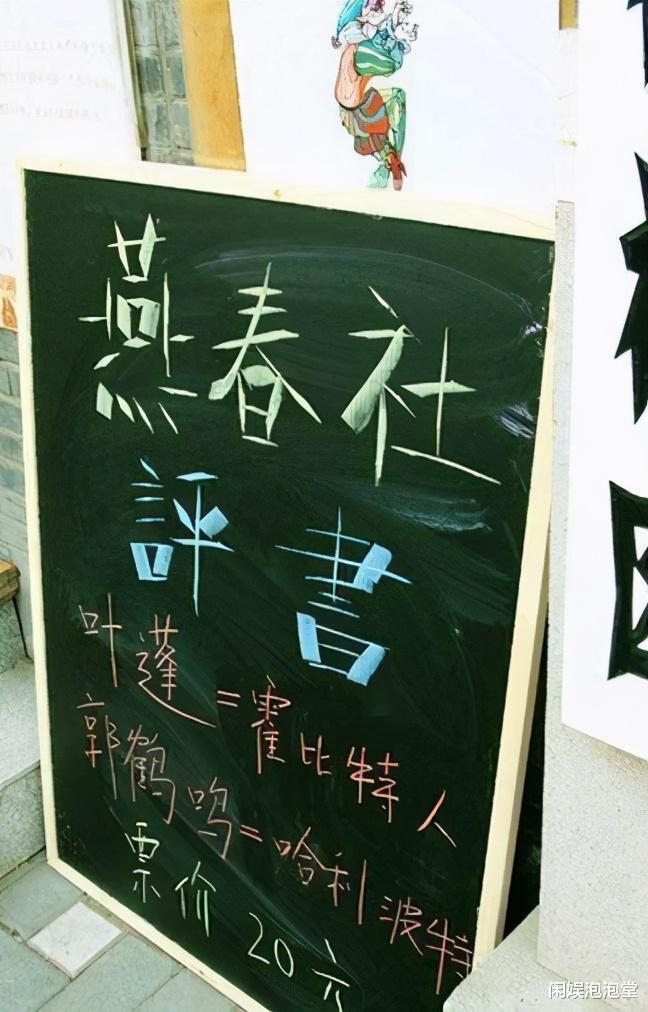 燕春社
評書
叶蓬=霍比特人
郭鶴鸣=哈利波特
票价 20元
闲娱泡泡堂